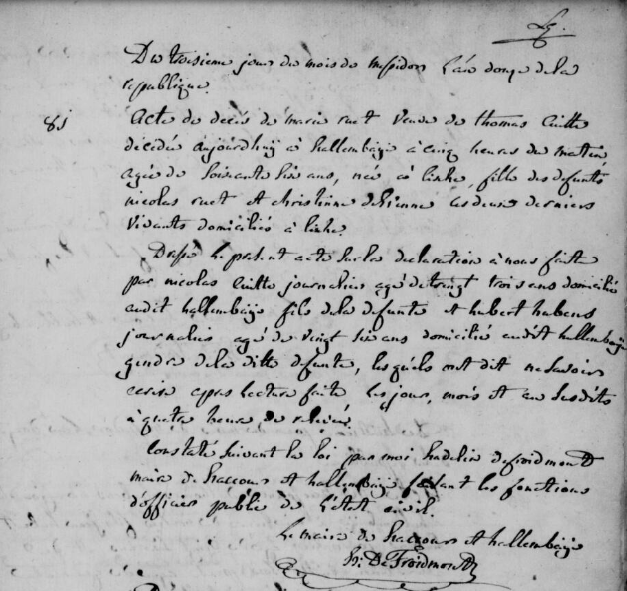 Du troisieme jour du mois de Messidor L'an douze de la
republique.
81 Acte de decès de marie ruet veuve de thomas
décédée aujourdhuÿ à hallembaÿe à cinq heures du matin,
agée de soixante six ans, née à linhe, fille des defunts
nicolas ruet et christinne les deux derniers
vivants domiciliés à linhe.
Dressé le présent acte sur la declaration à nous faite
par nicolas journalier agé de vingt trois ans domicilié
audit hallembaÿe fils de la defunte et hubert hubens
journalier agé de vingt six ans domicilié audit hallembaÿe
gendre de la ditte defunte, lesquels ont dit ne savoir
ecrire apres lecture faite les jour, mois et an susdits
à quatre heure de relevée
Constaté suivant la loi par moi hadelin defroidmont
maire de haccour et hallembaÿe faisant les fonctions
d'officier public de L'état civil.
Le maire de haccour et hallembaÿe
h: De Froidmont